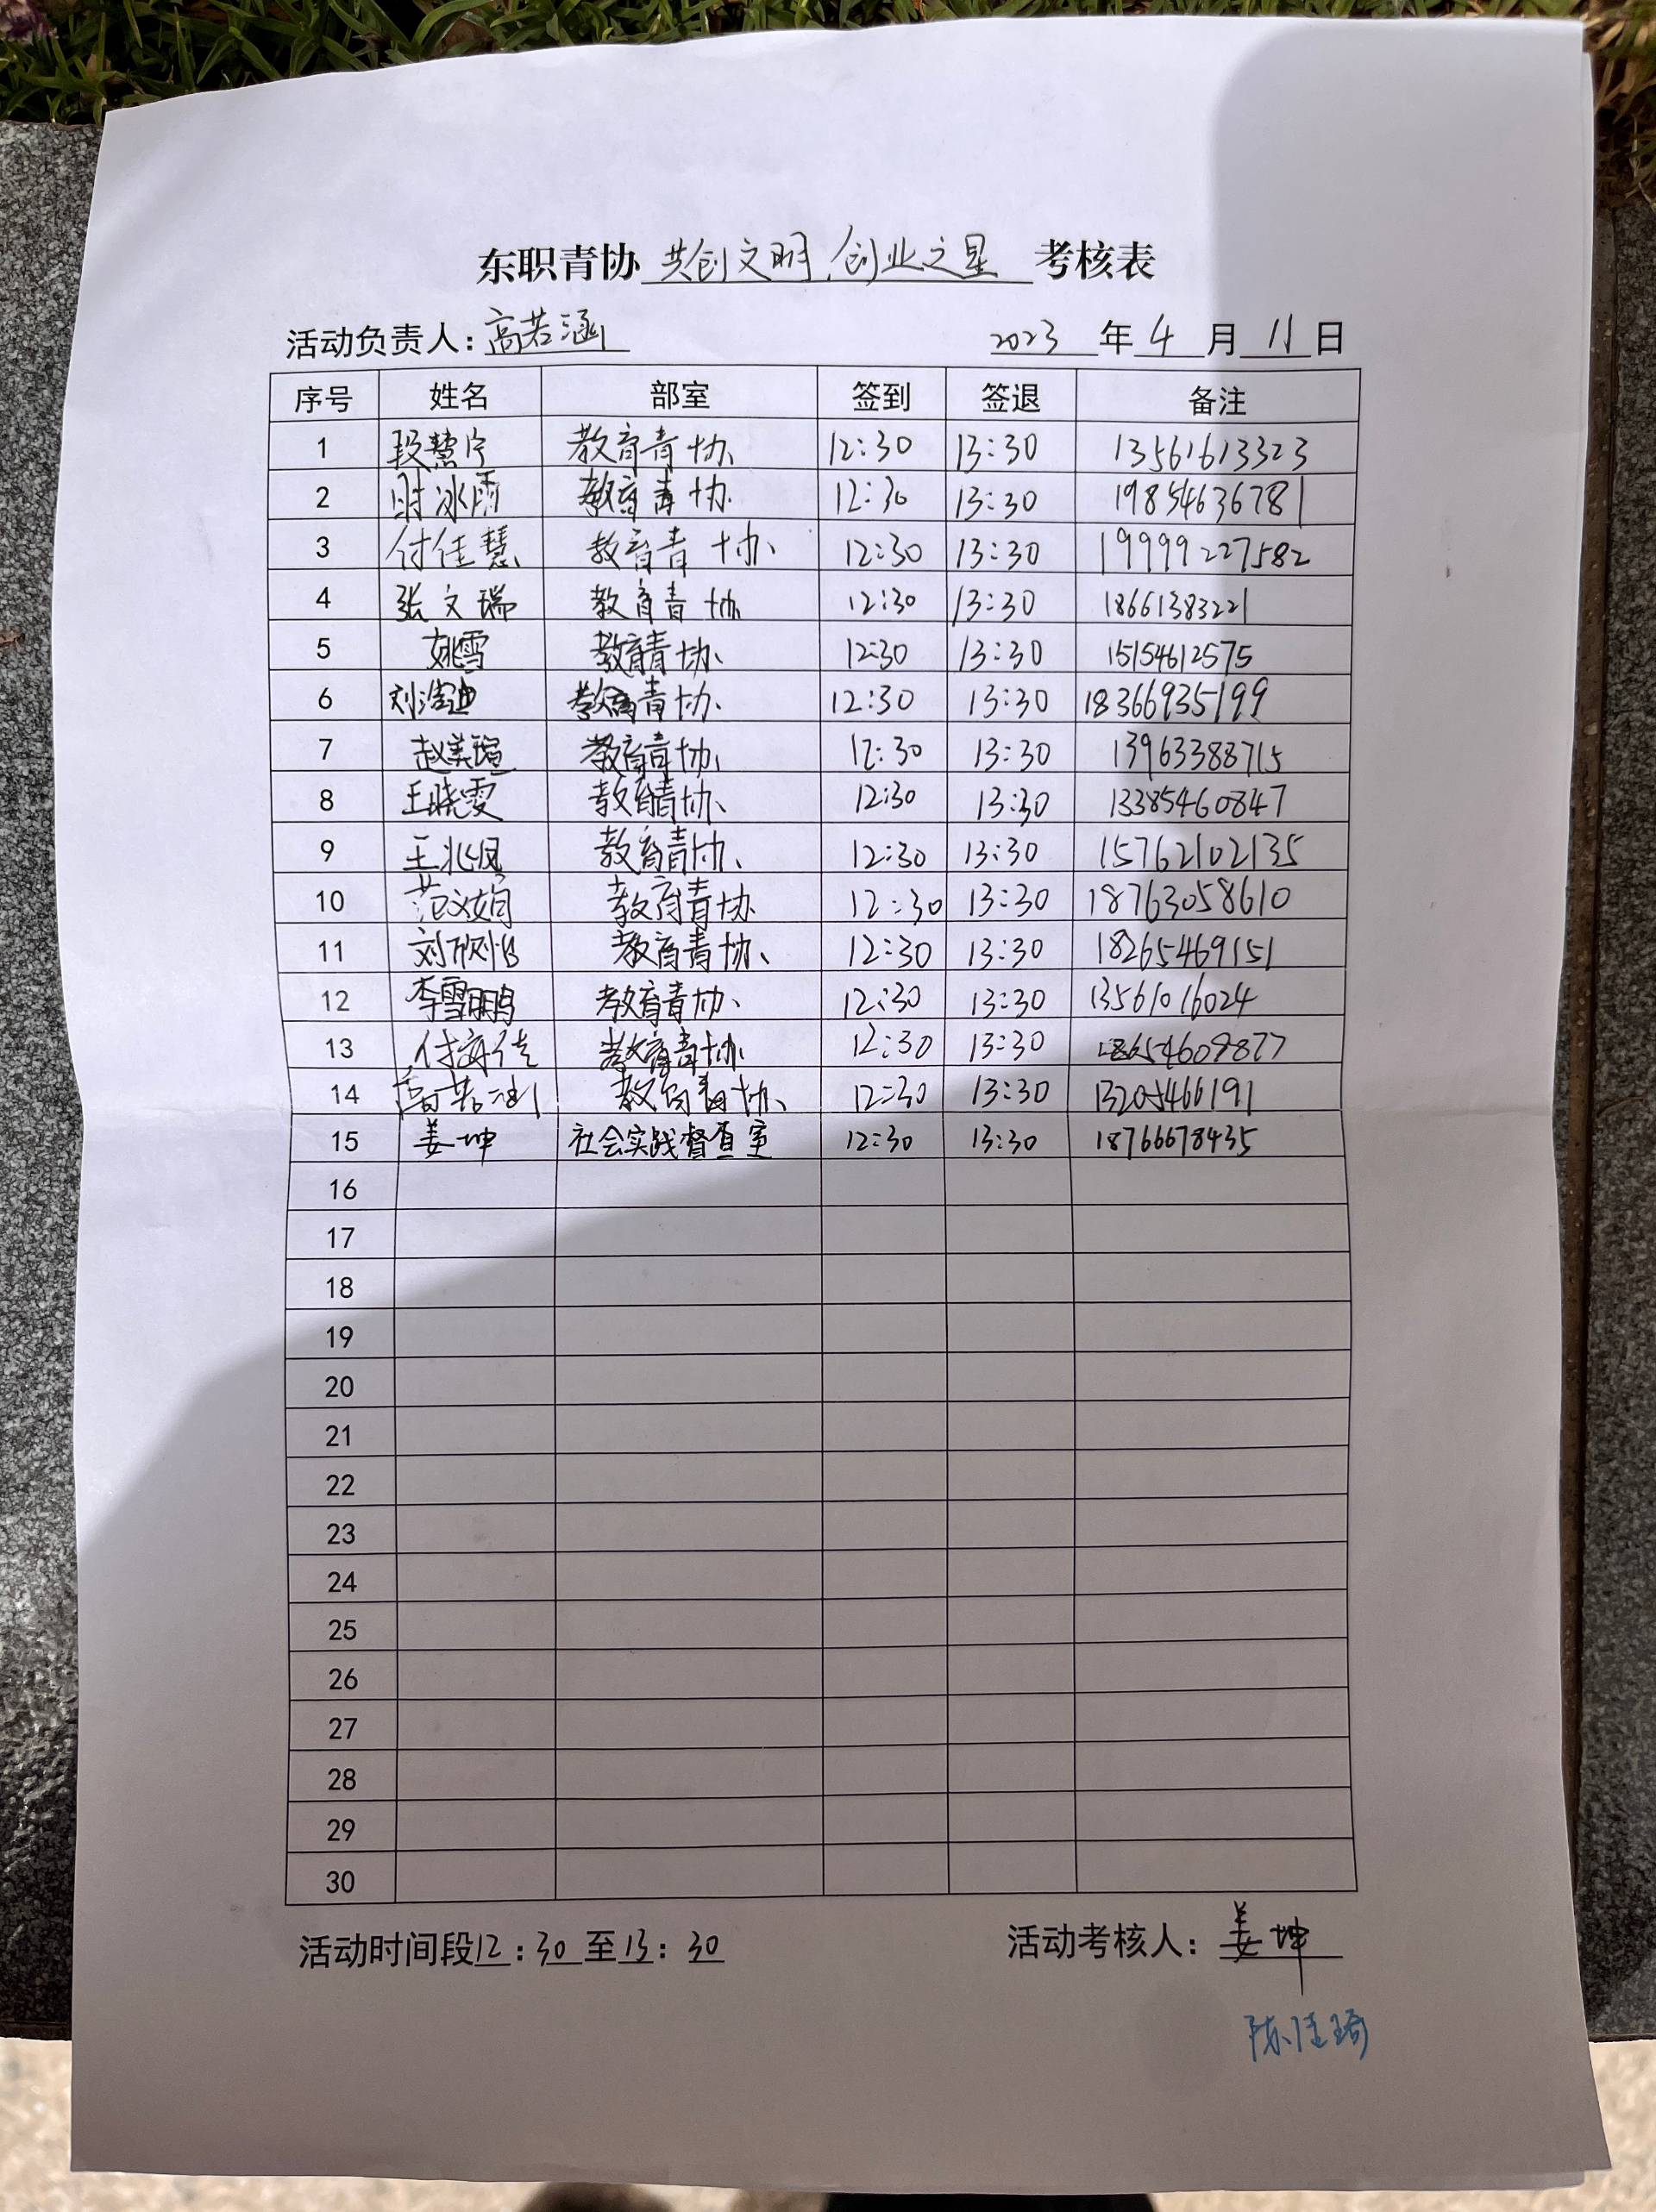 东职青协 共创文明,创业之星 考核表
活动负责人：高若涵 2023 年 4 月 11 日
序号 姓名 部室 签到 签退 备注
1 段慧宁 教育青协 12:30 13:30 13561613323
2 时冰雨 教育青协 12:30 13:30 19854636781
3 付佳慧 教育青协 12:30 13:30 19999227582
4 张文瑞 教育青协 12:30 13:30 18661383221
5 姚雪 教育青协 12:30 13:30 15154612575
6 教育青协 12:30 13:30 18366935199
7 赵美瑄 教育青协 12:30 13:30 13963388715
8 王晓雯 教育青协 12:30 13:30 13385460847
9 王兆凤 教育青协 12:30 13:30 15762102135
10 教育青协 12:30 13:30 18763058610
11 刘欣怡 教育青协 12:30 13:30 18265469151
12 李雪鹏 教育青协 12:30 13:30 13561016024
13 教育青协 12:30 13:30 18654609877
14 高若涵 教育青协 12:30 13:30 13205466191
15 姜坤 社会实践督查室 12:30 13:30 18766678435
16
17
18
19
20
21
22
23
24
25
26
27
28
29
30
活动时间段12:30至13:30 活动考核人：姜坤
陈佳琦